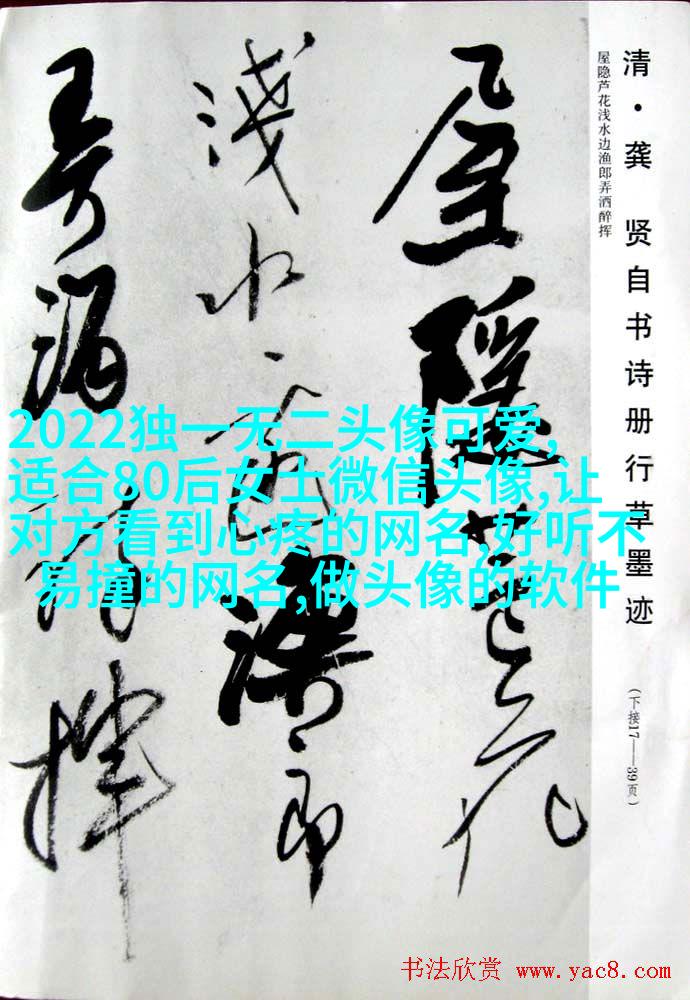 清·龚 贤自书诗册行草墨迹
屋隐芦花浅水边渔郎弄洒醉挥
(下接17——39页)
屋隐芦花
浅水边渔郎
弄酒醉挥
2022独一无二头像可爱,
适合80后女士微信头像,让
对方看到心疼的网名,好听不
易撞的网名,做头像的软件
书法欣赏 www.yac8.com